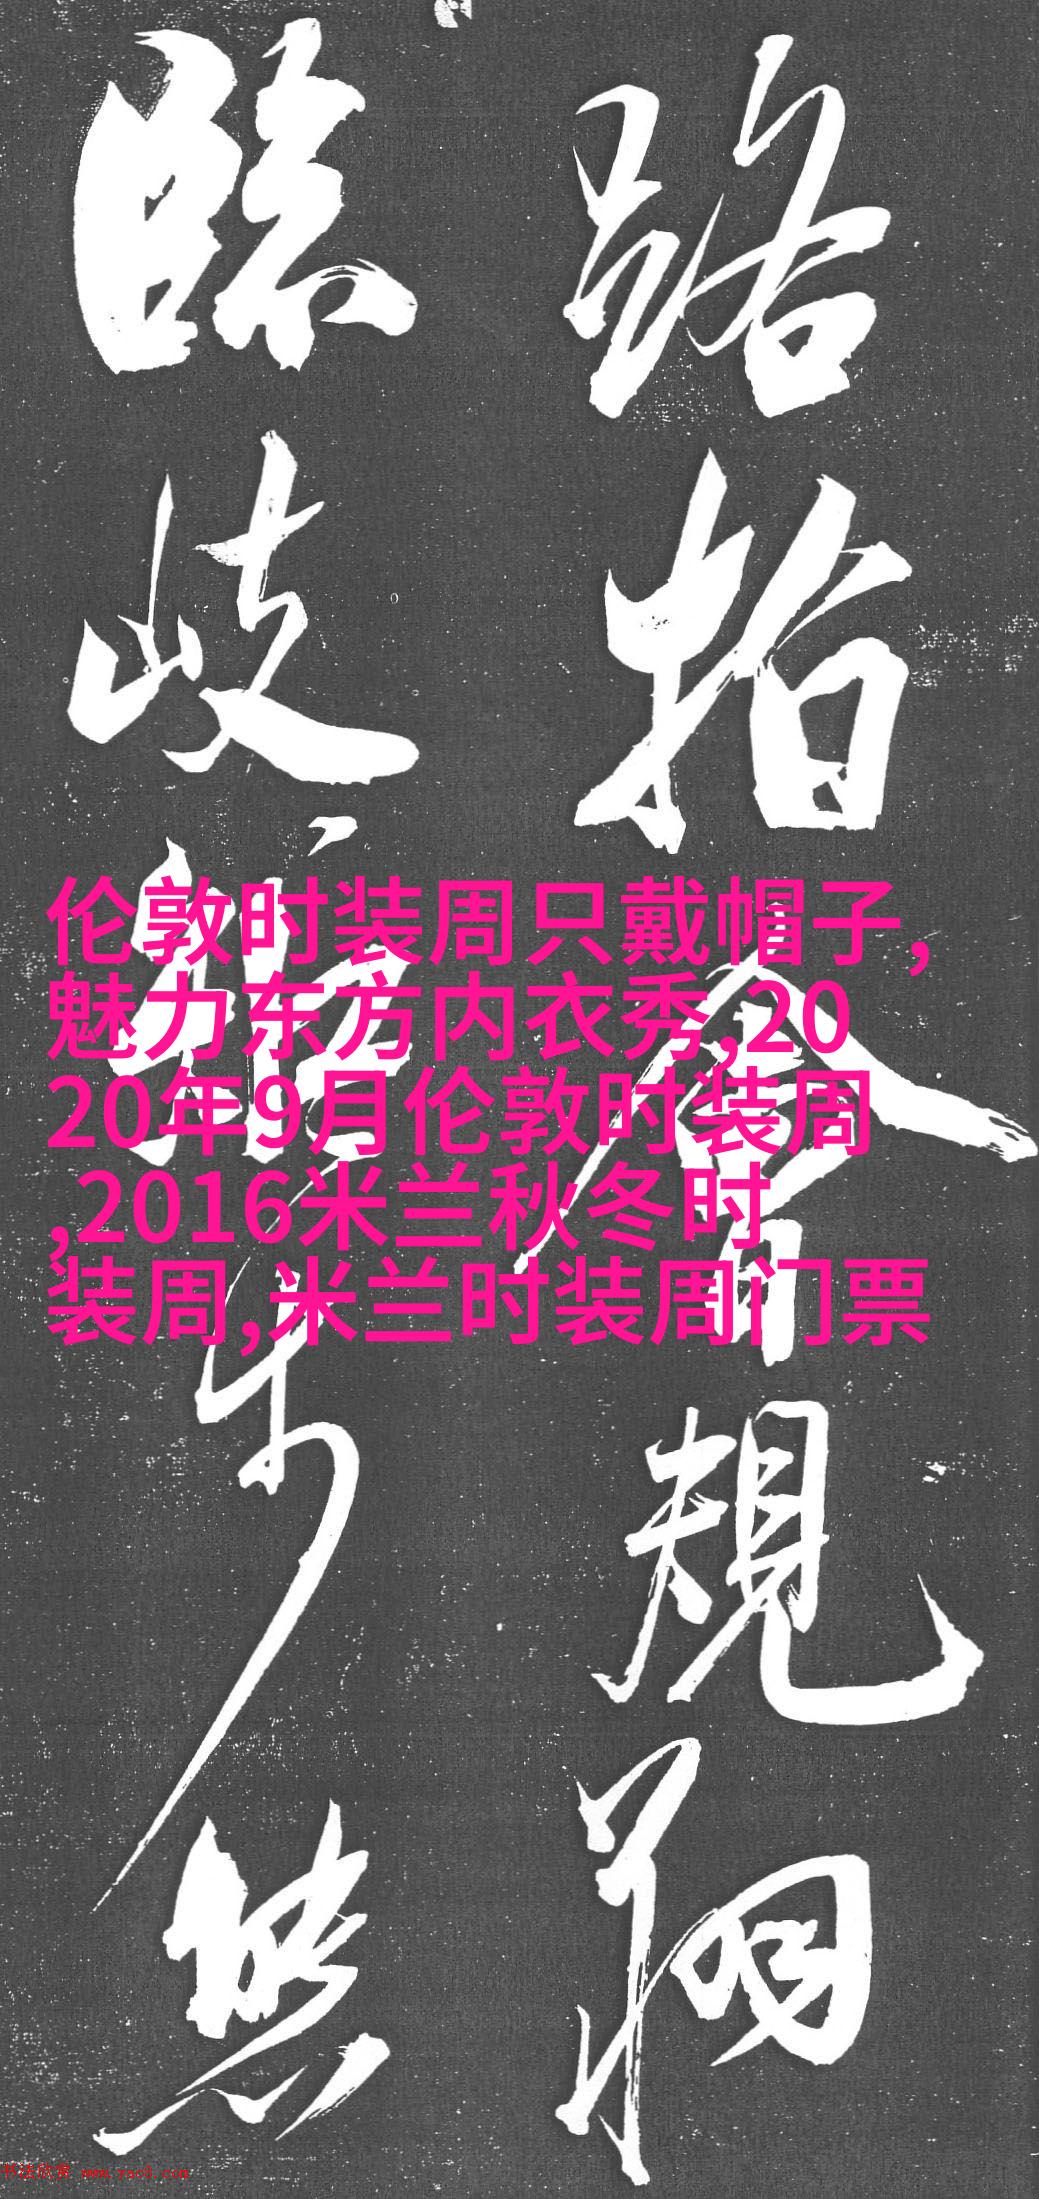 路指
規翔
臨岐
步
伦敦时装周只戴帽子,
魅力东方内衣秀,20
20年9月伦敦时装周
,2016米兰秋冬时
装周,米兰时装周门票
书法欣赏 www.yac8.com